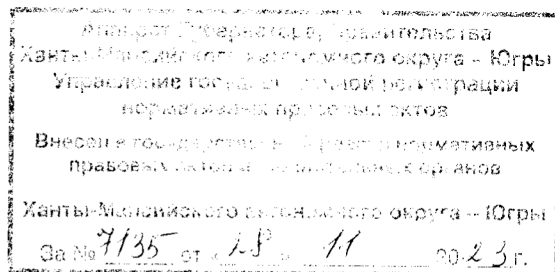 Аппарат Губернатора, Правительства
Ханты-Мансийского автономного округа – Югры
Управление государственной регистрации
нормативных правовых актов
Внесен в государственный нормативных
правовых актов органов
Ханты-Мансийского автономного округа – Югры
За № 7135 от « » 11 2023 г.